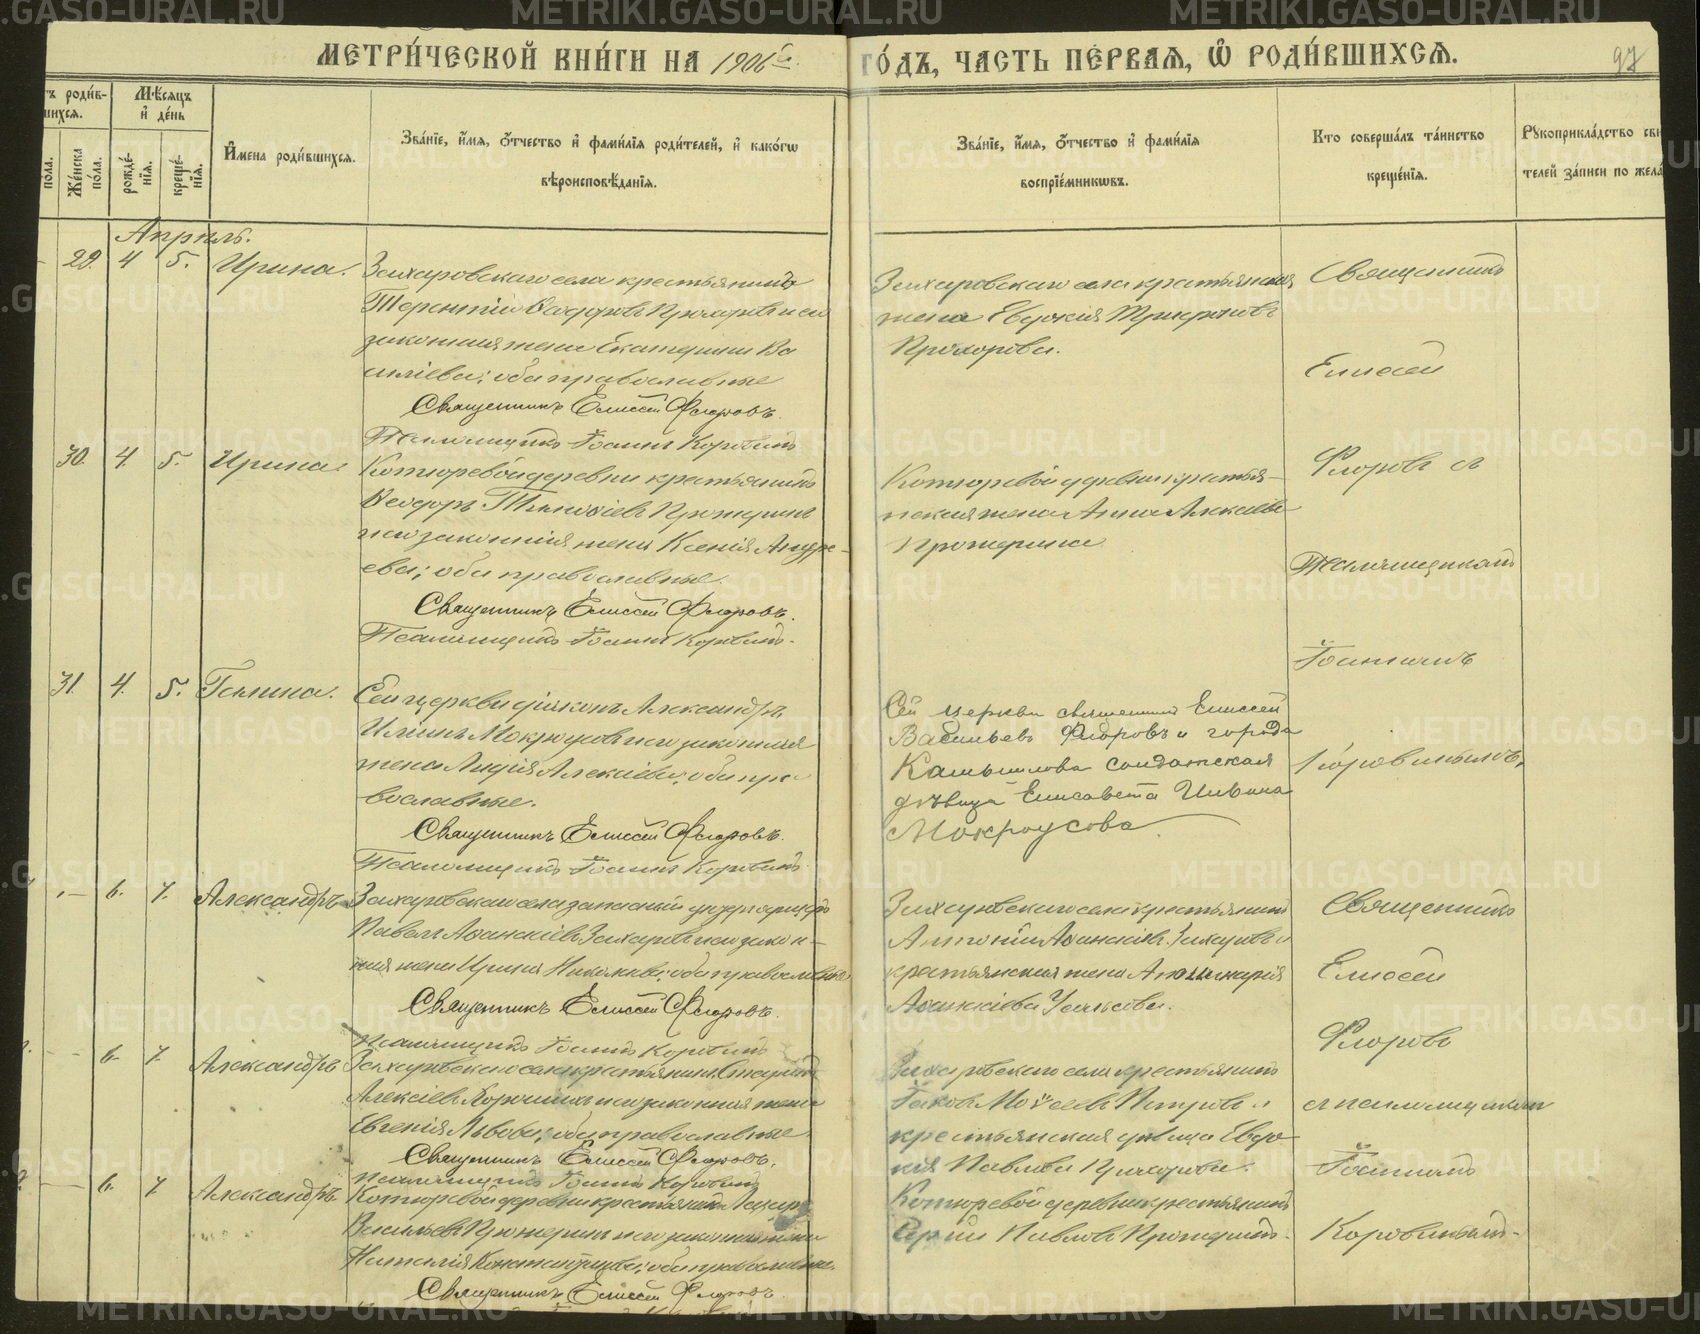 МЕТРИ́ЧЕСКОЙ КНИ́ГИ НА 1906 й ГО́ДЪ, ЧАСТЬ ПЕ́РВАЯ, Ѿ РОДИ́ВШИХСЯ.
97
тъ роди́в-
шихся.
Мѣ́сяцъ
и҆ де́нь
пола.
Же́нска
по́ла.
рожде́-
нїя.
креще́-
нїя.
И҆мена роди́вшихся.
Зва́нїе, и҆́мя, ѻ҆́тчество и҆ фами́лїя роди́телей, и҆ како́гѡ
вѣроисповѣ́данїя.
Зва́нїе, и҆́мя, ѻ҆́тчество и҆ фами́лїя
воспрїе́мникѡвъ.
Кто соверша́лъ та́инство
креще́нїя.
Рꙋкоприкла́дство сви
телей за́писи по жела
Апрѣль.
29. 4 5. Ирина.
Захаровскаго села крестьянинъ
Терентій Ѳеодоровъ Прохоровъ и его
законная жена Екатерина Ва
силіева; оба православные
Священникъ Елисей Флоровъ.
Псаломщикъ Іоаннъ Коровинъ
Захаровскаго села крестьянская
жена Евдокія
Прохорова.
Священникъ
Елисей
Флоровъ съ
псаломщикомъ
Іоанномъ
Коровинымъ.
30. 4. 5. Ирина.
Котюревой деревни крестьянинъ
Ѳеодоръ Тимоѳеевъ
и его законная жена Ксенія Андре-
ева; оба православные.
Священникъ Елисей Флоровъ.
Псаломщикъ Іоаннъ Коровинъ.
Котюревой деревни крестья-
нская жена Анна Алексіева
31. 4. 5. Галина.
Сей церкви діаконъ Александръ
Мокроусовъ и его законная
жена Лидія Алексіева; оба пра-
вославные.
Священникъ Елисей Флоровъ.
Псаломщикъ Іоаннъ Коровинъ.
Сей церкви священникъ Елисей
Васильевъ Флоровъ и города
Камышлова солдатская
дѣвица Елисавета Ильина
Мокроусова.
6. 7. Александръ
Захаровскаго села запасный унтеръ-офицеръ
Павелъ Аѳанасіевъ Захаровъ и его закон-
ная жена Ирина Николаева; оба православные
Священникъ Елисей Флоровъ.
Псаломщикъ Іоаннъ Коровинъ
Захаровскаго села крестьянинъ
Антоній Аѳанасіевъ Захаровъ и
крестьянская жена Аполлинарія
Аѳанасіева
Священникъ
Елисей
Флоровъ
съ псаломщикомъ
Іоанномъ
Коровинымъ.
6. 7. Александръ
Захаровскаго села крестьянинъ
Алексіевъ и его законная жена
Евгенія Львова; оба православные.
Священникъ Елисей Флоровъ.
Псаломщикъ Іоаннъ Коровинъ
Захаровскаго села крестьянинъ
Іаковъ Моѵсеевъ Петровъ и
крестьянская дѣвица Евдо-
кія Павлова Прохорова.
6. 7. Александръ.
Котюревой деревни крестьянинъ Лазарь
Васильевъ и его законная жена
Наталія Константинова; оба православные.
Священникъ Елисей Флоровъ.
Котюревой деревни крестьянинъ
Сергій Павловъ
METRIKI.GASO-URAL.RU